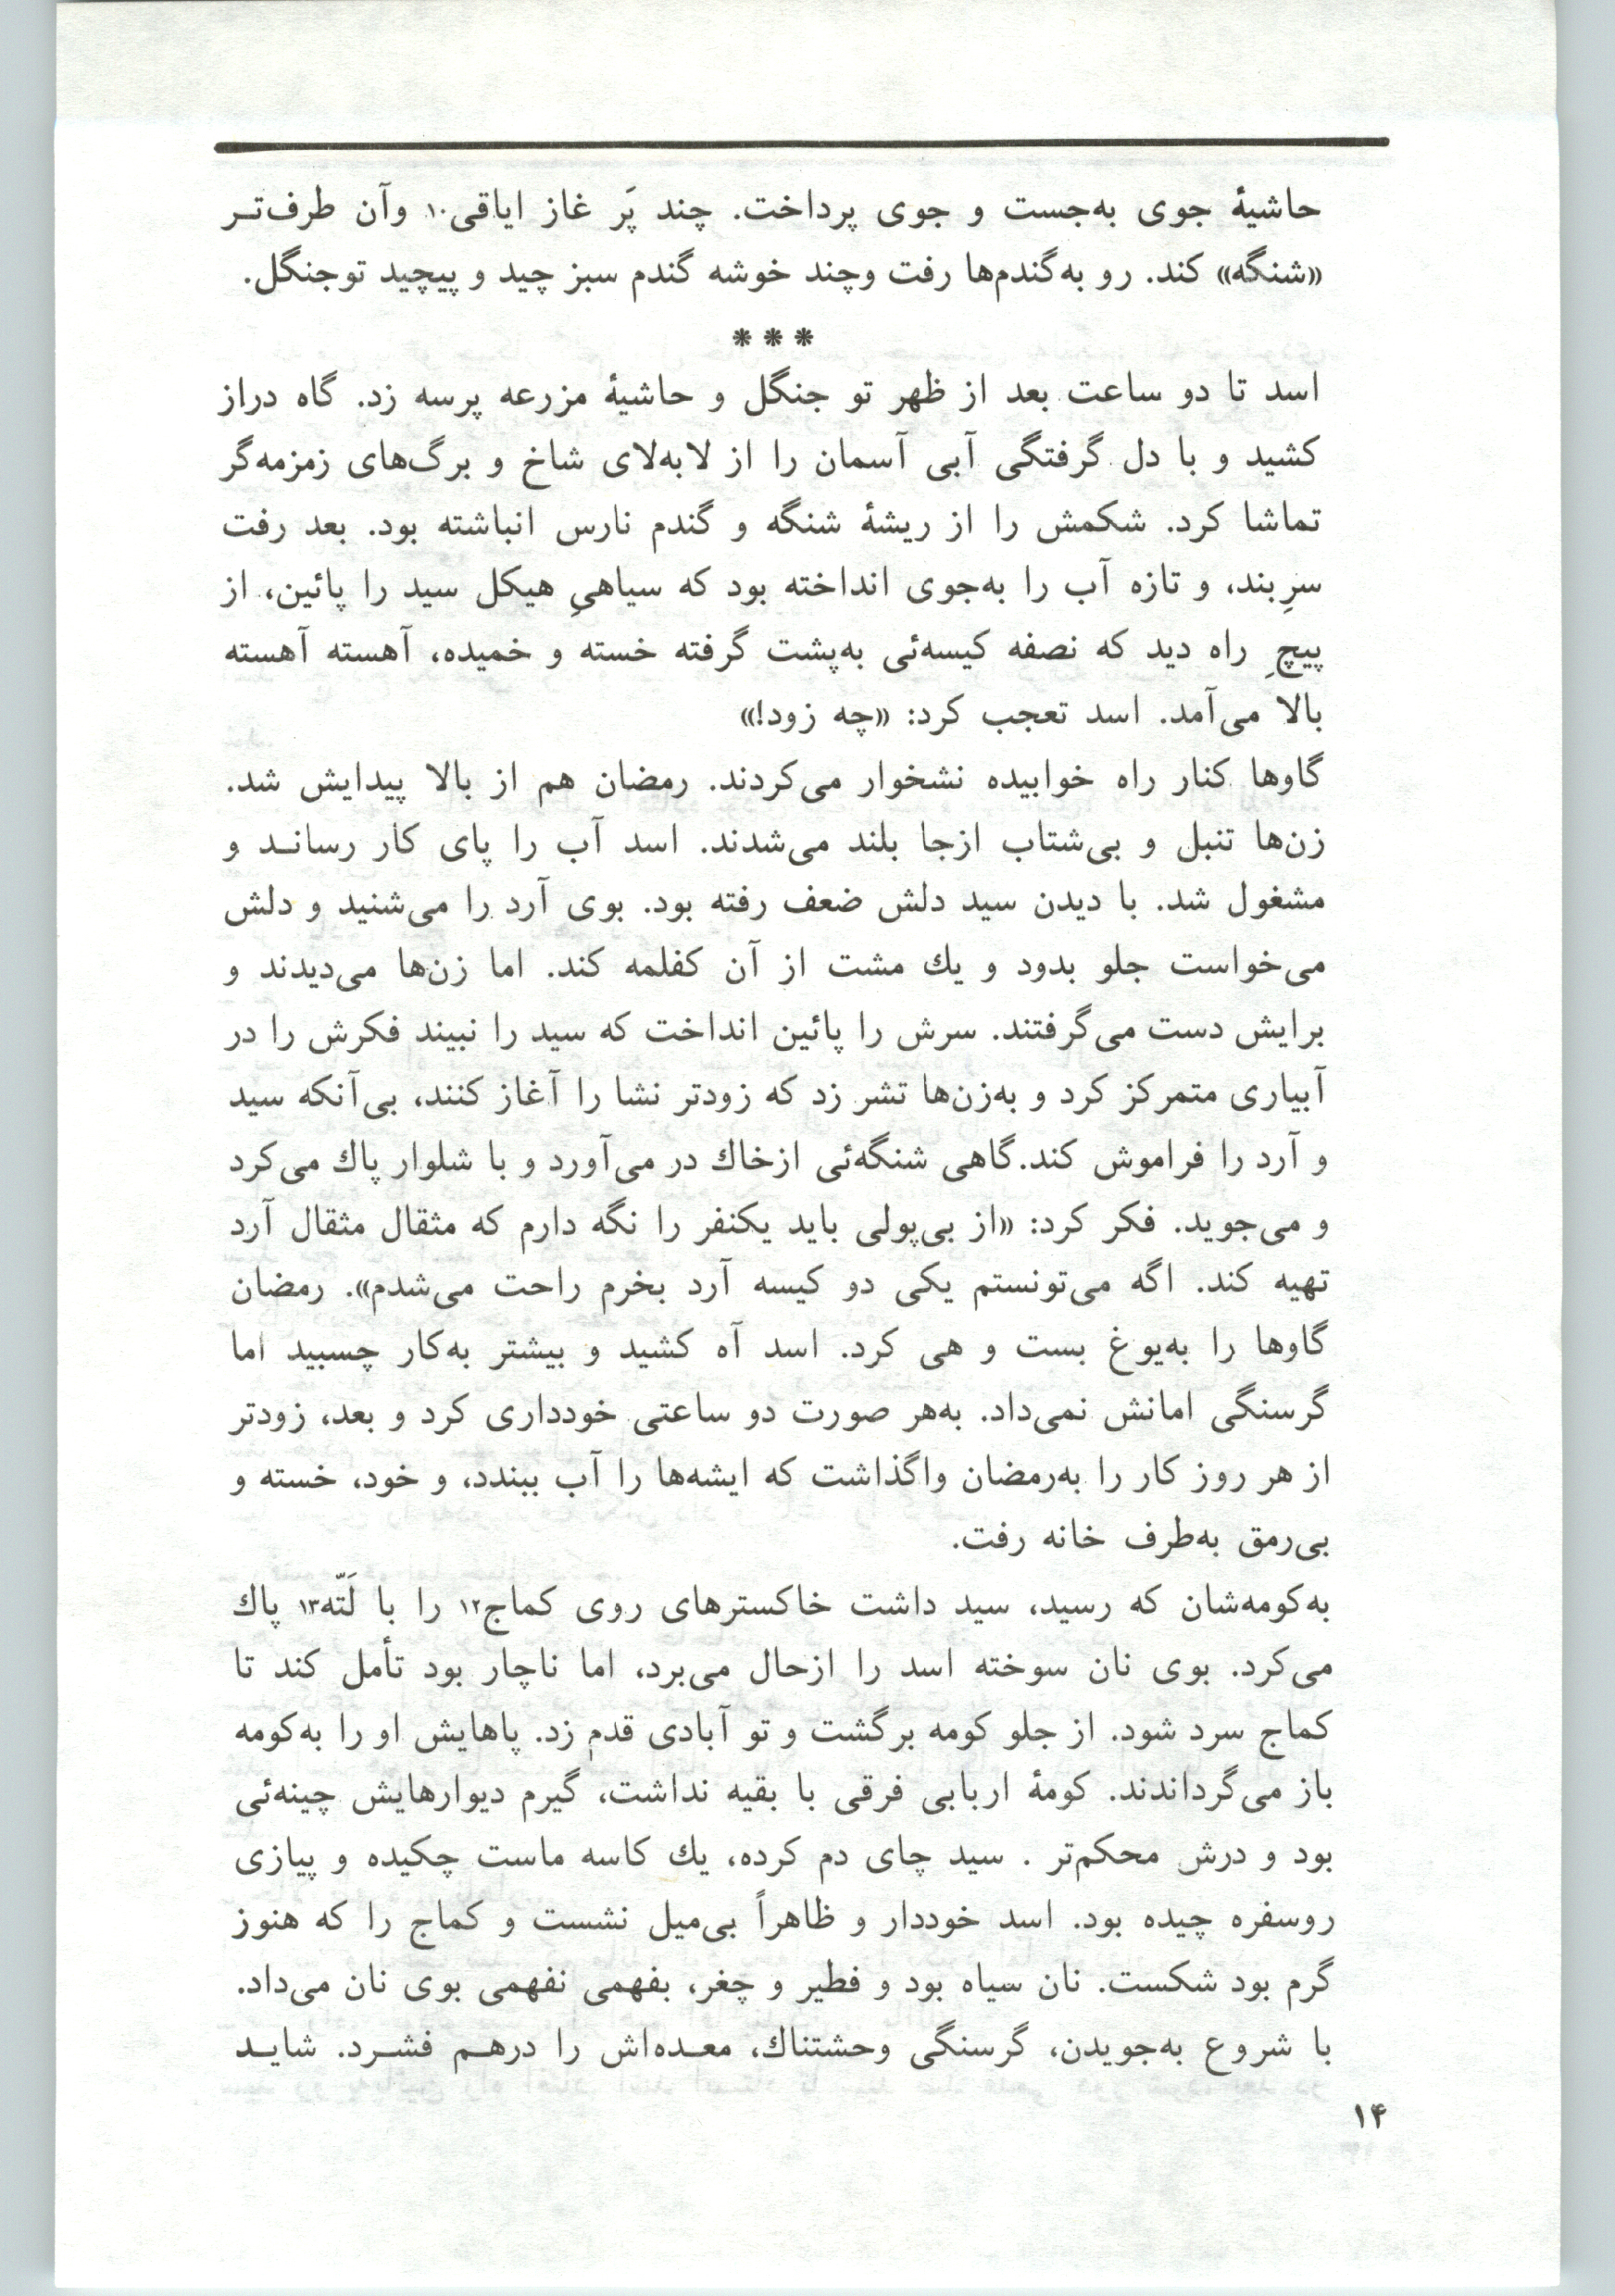 حاشیهٔ جوی به‌جست و جوی پرداخت. چند پَر غاز ایاقی۱۰ وآن طرف‌تـر
«شنگه» کند. رو به‌گندم‌ها رفت وچند خوشه گندم سبز چید و پیچید توجنگل.
* * *
اسد تا دو ساعت بعد از ظهر تو جنگل و حاشیهٔ مزرعه پرسه زد. گاه دراز
کشید و با دل گرفتگی آبی آسمان را از لابه‌لای شاخ و برگ‌های زمزمه‌گر
تماشا کرد. شکمش را از ریشهٔ شنگه و گندم نارس انباشته بود. بعد رفت
سرِبند، و تازه آب را به‌جوی انداخته بود که سیاهیِ هیکل سید را پائین، از
پیچِ راه دید که نصفه کیسه‌ئی به‌پشت گرفته خسته و خمیده، آهسته آهسته
بالا می‌آمد. اسد تعجب کرد: «چه زود!»
گاوها کنار راه خوابیده نشخوار می‌کردند. رمضان هم از بالا پیدایش شد.
زن‌ها تنبل و بی‌شتاب ازجا بلند می‌شدند. اسد آب را پای کار رسانـد و
مشغول شد. با دیدن سید دلش ضعف رفته بود. بوی آرد را می‌شنید و دلش
می‌خواست جلو بدود و یك مشت از آن کفلمه کند. اما زن‌ها می‌دیدند و
برایش دست می‌گرفتند. سرش را پائین انداخت که سید را نبیند فکرش را در
آبیاری متمرکز کرد و به‌زن‌ها تشر زد که زودتر نشا را آغاز کنند، بی‌آنکه سید
و آرد را فراموش کند.گاهی شنگه‌ئی ازخاك در می‌آورد و با شلوار پاك می‌کرد
و می‌جوید. فکر کرد: «از بی‌پولی باید یکنفر را نگه دارم که مثقال مثقال آرد
تهیه کند. اگه می‌تونستم یکی دو کیسه آرد بخرم راحت می‌شدم». رمضان
گاوها را به‌یوغ بست و هی کرد. اسد آه کشید و بیشتر به‌کار چسبید اما
گرسنگی امانش نمی‌داد. به‌هر صورت دو ساعتی خودداری کرد و بعد، زودتر
از هر روز کار را به‌رمضان واگذاشت که ایشه‌ها را آب ببندد، و خود، خسته و
بی‌رمق به‌طرف خانه رفت.
به‌کومه‌شان که رسید، سید داشت خاکسترهای روی کماج۱۲ را با لَتّه۱۳ پاك
می‌کرد. بوی نان سوخته اسد را ازحال می‌برد، اما ناچار بود تأمل کند تا
کماج سرد شود. از جلو کومه برگشت و تو آبادی قدم زد. پاهایش او را به‌کومه
باز می‌گرداندند. کومهٔ اربابی فرقی با بقیه نداشت، گیرم دیوارهایش چینه‌ئی
بود و درش محکم‌تر . سید چای دم کرده، یك کاسه ماست چکیده و پیازی
روسفره چیده بود. اسد خوددار و ظاهراً بی‌میل نشست و کماج را که هنوز
گرم بود شکست. نان سیاه بود و فطیر و چغر، بفهمی نفهمی بوی نان می‌داد.
با شروع به‌جویدن، گرسنگی وحشتناك، معـده‌اش را درهـم فشـرد. شایـد
۱۴